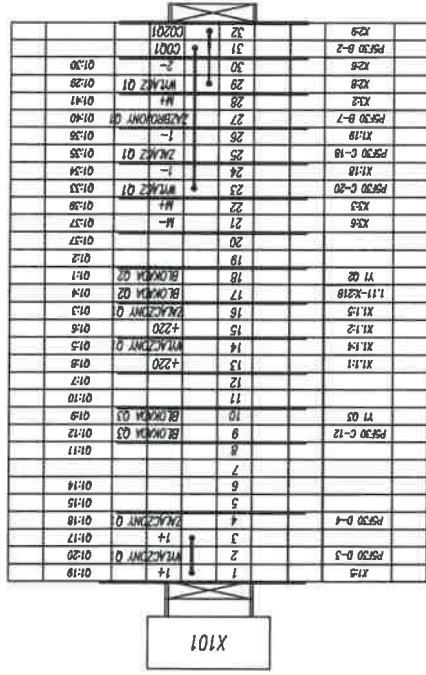 X101
X1:5 1 1+ Q1:19
PSF30 D-3 2 WYŁĄCZONY Q1 Q1:20
3 1+ Q1:17
PSF30 D-4 4 ZAŁĄCZONY Q1 Q1:18
5 Q1:15
6 Q1:14
7
8 Q1:11
PSF30 C-12 9 BLOKADA Q3 Q1:12
Y1 Q3 10 BLOKADA Q3 Q1:9
11 Q1:10
12 Q1:7
X1.1:1 13 +220 Q1:8
X1.1:4 14 WYŁĄCZONY Q1 Q1:5
X1.1:2 15 +220 Q1:6
X1.1:5 16 ZAŁĄCZONY Q1 Q1:3
1.11-X21B 17 BLOKADA Q2 Q1:4
Y1 Q2 18 BLOKADA Q2 Q1:1
19 Q1:2
20 Q1:37
X3:6 21 M- Q1:37
X3:3 22 M+ Q1:39
PSF30 C-20 23 WYŁĄCZ Q1 Q1:33
X1:18 24 1- Q1:34
PSF30 C-18 25 ZAŁĄCZ Q1 Q1:35
X1:19 26 1- Q1:36
PSF30 B-7 27 ZAZBROJONY Q1 Q1:40
X3:2 28 M+ Q1:41
X2:8 29 WYŁĄCZ Q1 Q1:29
X2:6 30 2- Q1:30
PSF30 B-2 31 COQ1
X2:9 32